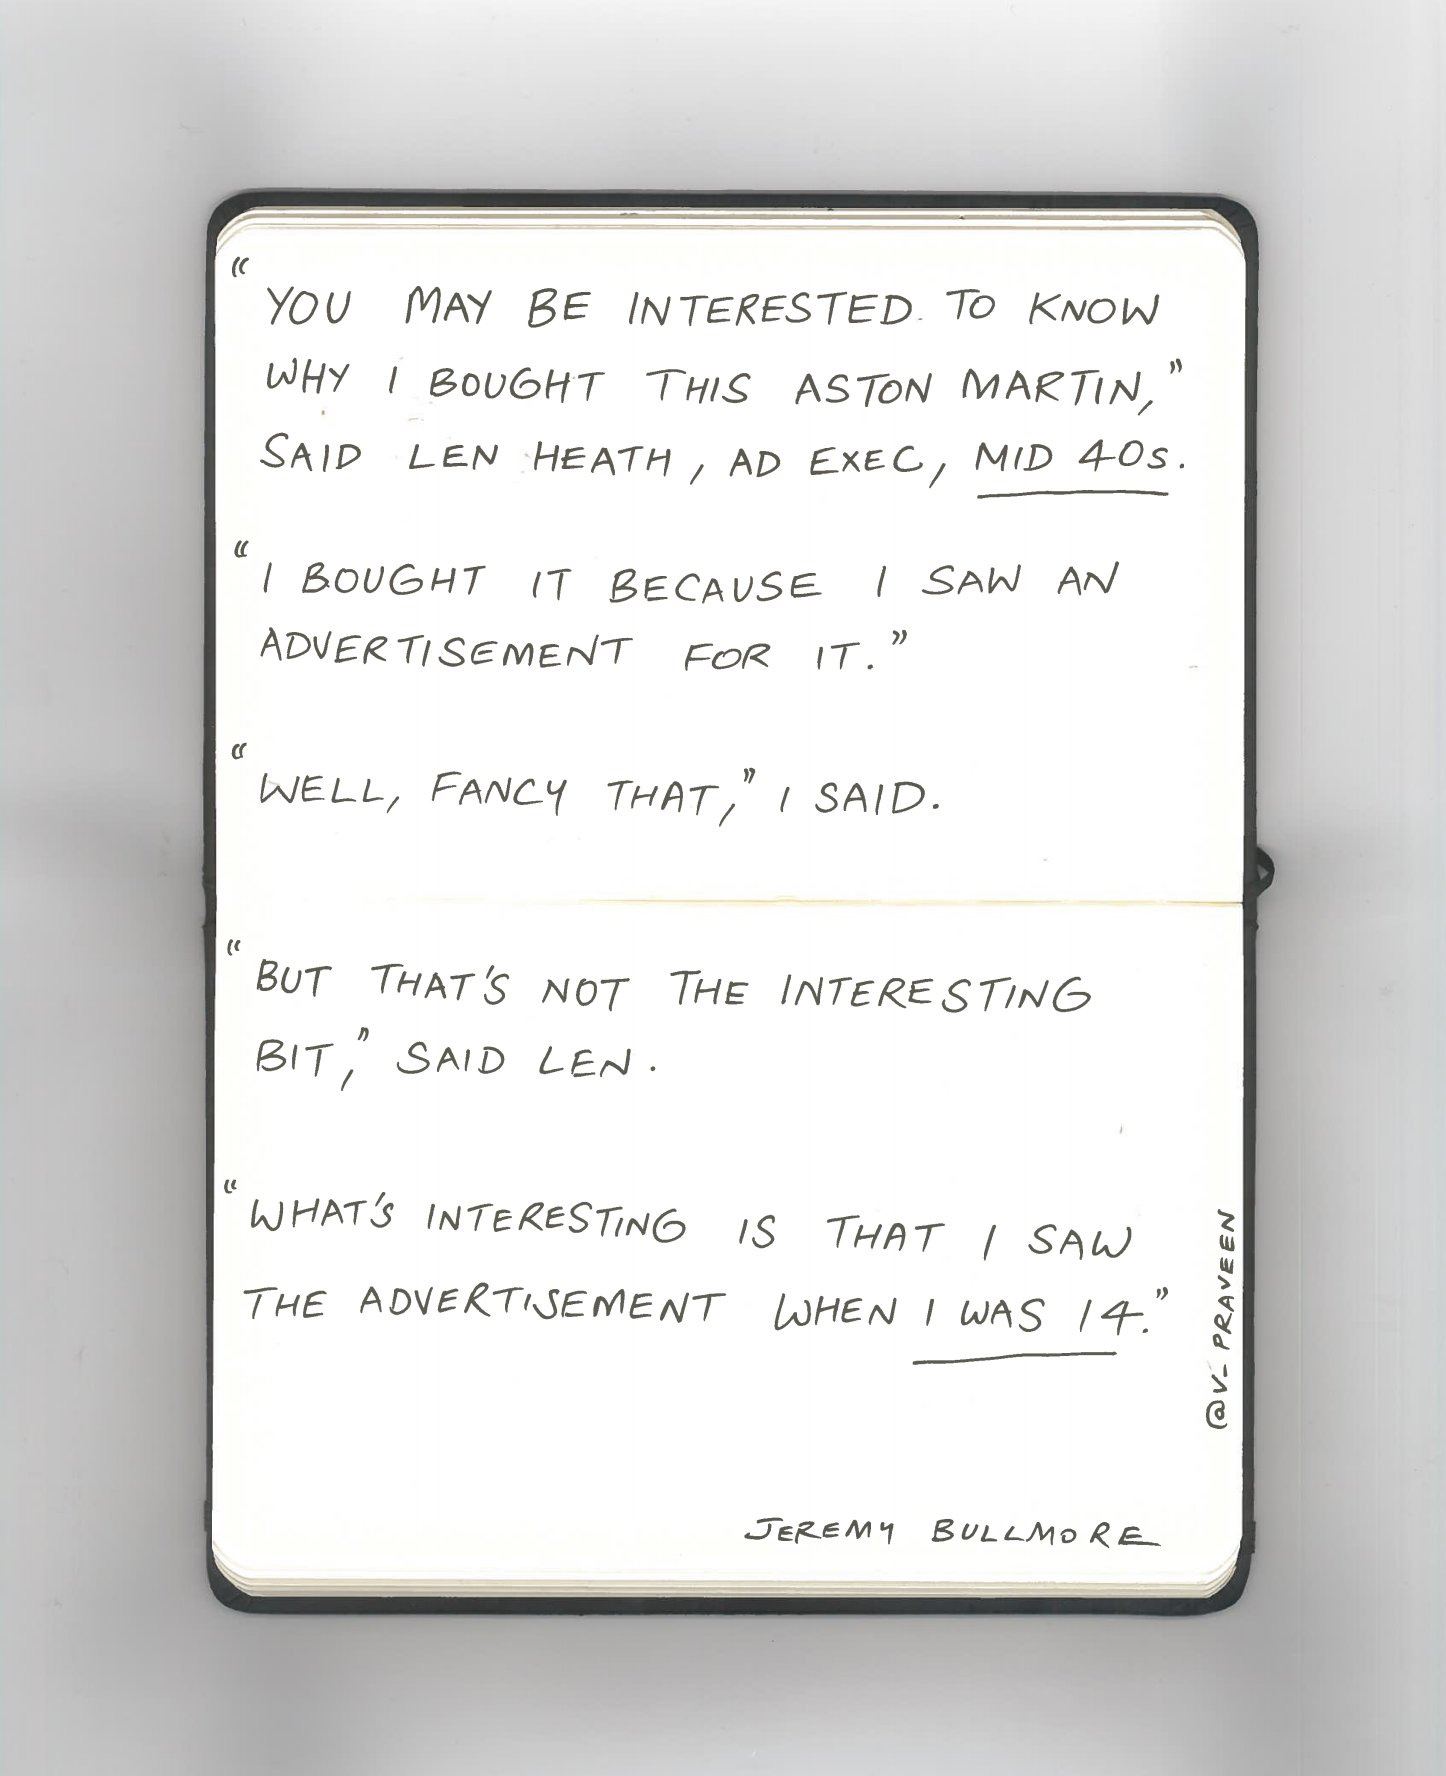 “YOU MAY BE INTERESTED TO KNOW
WHY I BOUGHT THIS ASTON MARTIN,”
SAID LEN HEATH, AD EXEC, MID 40s.
“I BOUGHT IT BECAUSE I SAW AN
ADVERTISEMENT FOR IT.”
“WELL, FANCY THAT,” I SAID.
“BUT THAT'S NOT THE INTERESTING
BIT,” SAID LEN.
“WHAT'S INTERESTING IS THAT I SAW
THE ADVERTISEMENT WHEN I WAS 14.”
@V_PRAVEEN
JEREMY BULLMORE